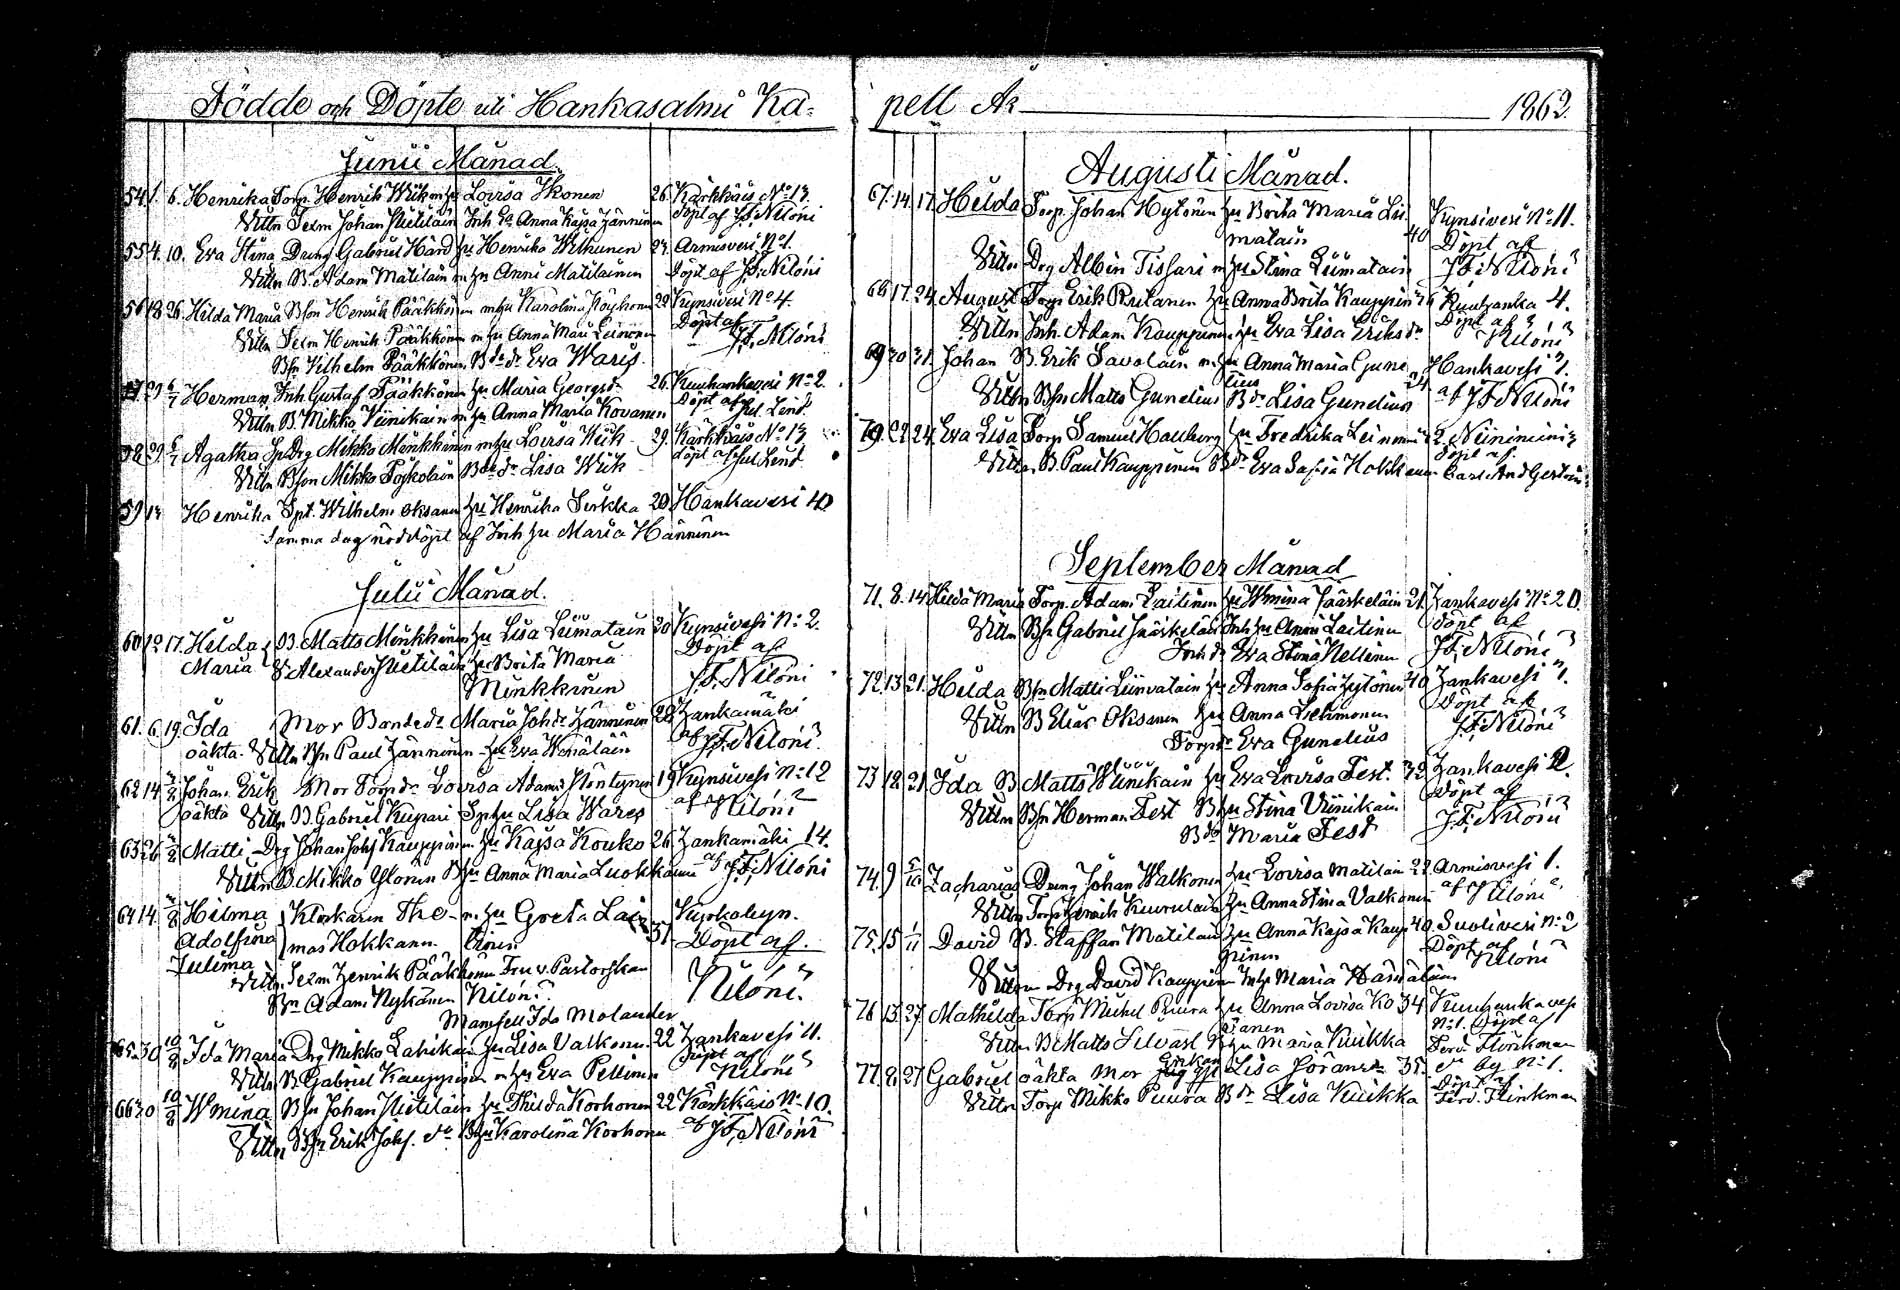 Födde och Döpte uti Hankasalmi Ka=
Junii Månad.
54. 1. 6. Henrika Torp. Henrik Wiik m hu Lovisa Ikonen 26. Kärkkäis No 13.
Vittn Sexm Johan Hietiläin Inh Ea Anna Kajsa Jänninen döpt af J.F. Nilóni
55 4. 10. Eva Stina Dreng Gabriel Hård hu Henrika Wilkunen 27. Armisvesi No 1.
Vittn B. Adam Matilain m hu Anni Matilainen Döpt af J.F. Nilóni
56 18 26. Hilda Maria Bson Henrik Pääkkönen m hu Karolina Poyhonen 22 Kynsivesi No 4.
Vittn Sexm Henrik Pääkkönen m hu Anna Mari Leinonen Döpt af
Bsn Vilhelm Pääkkönen Bde dr Eva Waris. J.F. Nilóni
29 6/7 Herman Inh Gustaf Pääkkönen hu Maria Georgsdr 26. Kuuhankavesi No 2.
Vittn B. Mikko Viinikain m hu Anna Maria Kovanen Döpt af Jul Lind.
58 29 6/7 Agatha Sp Drg Mikko Minkkinen m hu Lovisa Wiik 29. Kärkkäis No 13
Vittn Bson Mikko Poykolain Bde dr Lisa Wiik döpt af Jul Lind
59 13 Henrika Spt. Wilhelm Oksanen hu Henrika Serkka 20. Hankavesi 40
samma dag nöddöpt af Inh hu Maria Hänninen
Julii Månad.
60 12 17. Hilda B. Matts Minkkinen hu Lisa Liimatain 20 Kynsivesi No 2.
Maria V Alexander Hietiläin hu Brita Maria Döpt af
Minkkinen J.F. Nilóni
61. 6 19. Ida Mor Bondedr Maria Johdr Jänninen 28 Hankamäki
oäkta. Vittn Bsn Paul Jänninen hu Eva af J.F. Nilóni
62 14 Johan Erik Mor Torpdr Lovisa Adamsdr Pöntynen 19 Kynsivesi No 12
oäkta Vittn B. Gabriel Kupari Sp hu Lisa Wares af Nilóni
63 26 Matti Drg Johan Johs Kauppinen hu Kajsa Kouko 26 Hankamäki 14.
Vittn B. Mikko Ylönen B hu Anna Maria Luokkanen af J.F. Nilóni
64 14. Hilma Klockaren Tho- m. hu Greta Lai- Kyrkobyn.
Adolfina mas Hokkanen tinen 37 Döpt af.
Julina
Vittn Sexm Henrik Pääkkönen Fru v. Pastorskan
Bsn Adam Nykänen Nilóni. Nilóni.
Mamsell Ida Molander
65. 30 10/8 Ida Maria Drg Mikko Lahikain hu Lisa Valkonen. 22 Hankavesi 11.
Vittn B. Gabriel Kauppinen m hu Eva Pellinen Döpt af Nilóni
66 30 10/8 Wmina Bsn Johan Hietiläin hu Thilda Korhonen 22 Kärkkäis No 10.
Vittn Bsn Erik Johs. do B hu Karolina Korhonen af J.F. Nilóni
pell År 1862.
Augusti Månad.
67. 14. 17. Hilda Torp. Johan Hytönen hu Brita Maria Lii- Kynsivesi No 11.
matain 40 Döpt af
Vittn Drg Albin Tissari m hu Stina Liimatain J.F. Nilóni
68 17. 24. August Torp Erik Riitanen hu Anna Brita Kauppin 26 Kuuhanka 4.
Vittn Inh. Adam Kauppinen hu Eva Lisa Eriksdr Döpt af Nilóni
69 30 31. Johan B. Erik Savolain m hu Anna Maria Gune- Hankavesi 1.
lius 24
Vittn Bsn Matts Gunelius Bdr Lisa Gunelius af J.F. Nilóni
70. 22 24. Eva Lisa Torp Samuel Hallborg hu Fredrika Leinonen Niinimäki
Vittn B Paul Kauppinen Bdr Eva Sofia Hokkanen Döpt af. Carl And
September Månad
71. 8. 14 Hilda Maria Torp. Adam Laitinen hu Wmina Jääskeläin 21. Hankavesi No 20.
Vittn Bsn Gabriel Jääskeläin Inh hu Anni Laitinen Döpt af
Torp dr Eva Stina Nellinen J.F. Nilóni
72. 13 21. Hilda Bsn Matti Liinvatain hu Anna Sofia Hytönen 40 Hankavesi 1.
Vittn B Elias Oksanen hu Anna Ischmonen Döpt af
Torp dr Eva Gunelius J.F. Nilóni
73 18. 21. Ida B Matts Wiinikain hu Eva Lovisa Test. 32 Hankavesi 2.
Vittn Bsn Herman Test B hu Stina Viinikain Döpt af
B dr Maria Test J.F. Nilóni
74. 9 5/10 Zacharias Dreng Johan Walkonen hu Lovisa Matilain 22 Armisvesi 1.
Vittn Torp Henrik Kuurulain hu Anna Stina Valkonen af Nilóni
75. 15 1/11 David B. Staffan Matilain hu Anna Kajsa Kaup- 40. Suolivesi No 2
pinen Döpt af
Vittn Drg David Kauppinen Inh Maria Hämäläinen Nilóni
76 13. 27. Mathilda Torp Mickel Puura hu Anna Lovisa Ko- 34 Kuuhankavesi
sanen No 1. Döpt af
Vittn B Matts Silvast B hu Maria Kuikka Ferd. Flinkman
77. 8. 27 Gabriel oäkta Mor Enkan Lisa Göransdr 35. do by No 1.
Vittn Torp Mikko Puura B dr Lisa Kuikka Döpt af Ferd. Flinkman